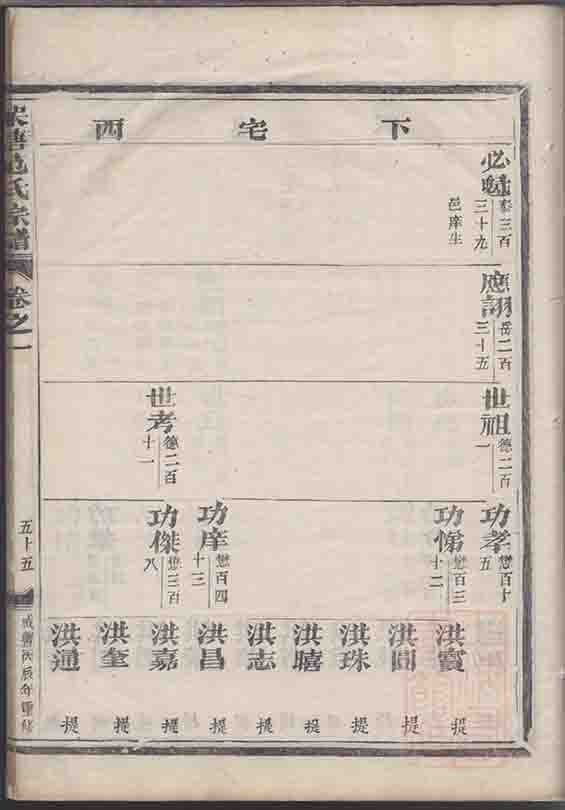 下宅西
必
泰三百
三十九
邑庠生
應詡
岳二百
三十五
世祖
德二百
一
世考
德二百
十一
功孝
懋百十
五
功悌
懋百三
十二
功庠
懋百四
十三
功傑
懋三百
八
洪寶
提
洪圖
提
洪珠
提
洪曦
提
洪志
提
洪昌
提
洪嘉
提
洪奎
提
洪通
提
范氏宗譜
卷之一
五十五
咸豐丙辰年重修